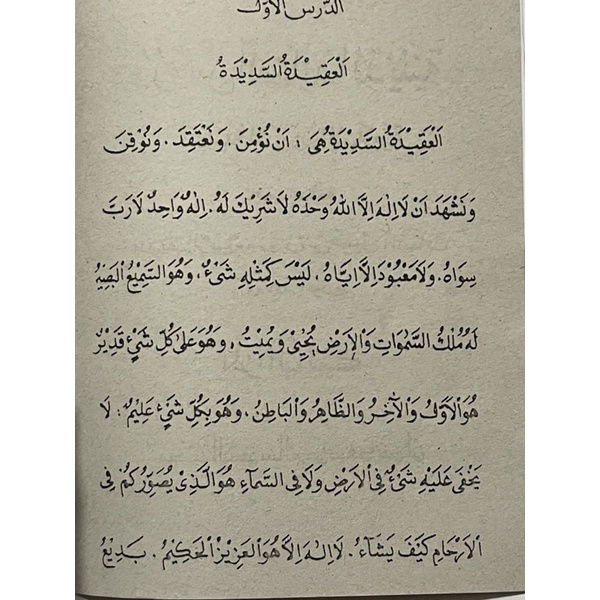 الدَّرْسُ الْأَوَّلُ
اَلْعَقِيْدَةُ السَّدِيْدَةُ
اَلْعَقِيْدَةُ السَّدِيْدَةُ هِيَ : اَنْ نُؤْمِنَ . وَنَعْتَقِدَ . وَنُوْقِنَ
وَنَشْهَدَ اَنْ لَا اِلٰهَ اِلَّا اللهُ وَحْدَهُ لَا شَرِيْكَ لَهُ . اِلٰهٌ وَاحِدٌ لَا رَبَّ
سِوَاهُ . وَلَا مَعْبُوْدَ اِلَّا اِيَّاهُ . لَيْسَ كَمِثْلِهِ شَيْءٌ . وَهُوَ السَّمِيْعُ الْبَصِيْرُ
لَهُ مُلْكُ السَّمٰوَاتِ وَالْاَرْضِ يُحْيِيْ وَيُمِيْتُ . وَهُوَ عَلٰى كُلِّ شَيْءٍ قَدِيْرٌ
هُوَ الْاَوَّلُ وَالْاٰخِرُ وَالظَّاهِرُ وَالْبَاطِنُ . وَهُوَ بِكُلِّ شَيْءٍ عَلِيْمٌ : لَا
يَخْفَى عَلَيْهِ شَيْءٌ فِي الْاَرْضِ وَلَا فِي السَّمَاءِ هُوَ الَّذِيْ يُصَوِّرُكُمْ فِي
الْاَرْحَامِ كَيْفَ يَشَاءُ . لَا اِلٰهَ اِلَّا هُوَ الْعَزِيْزُ الْحَكِيْمُ . بَدِيْعُ